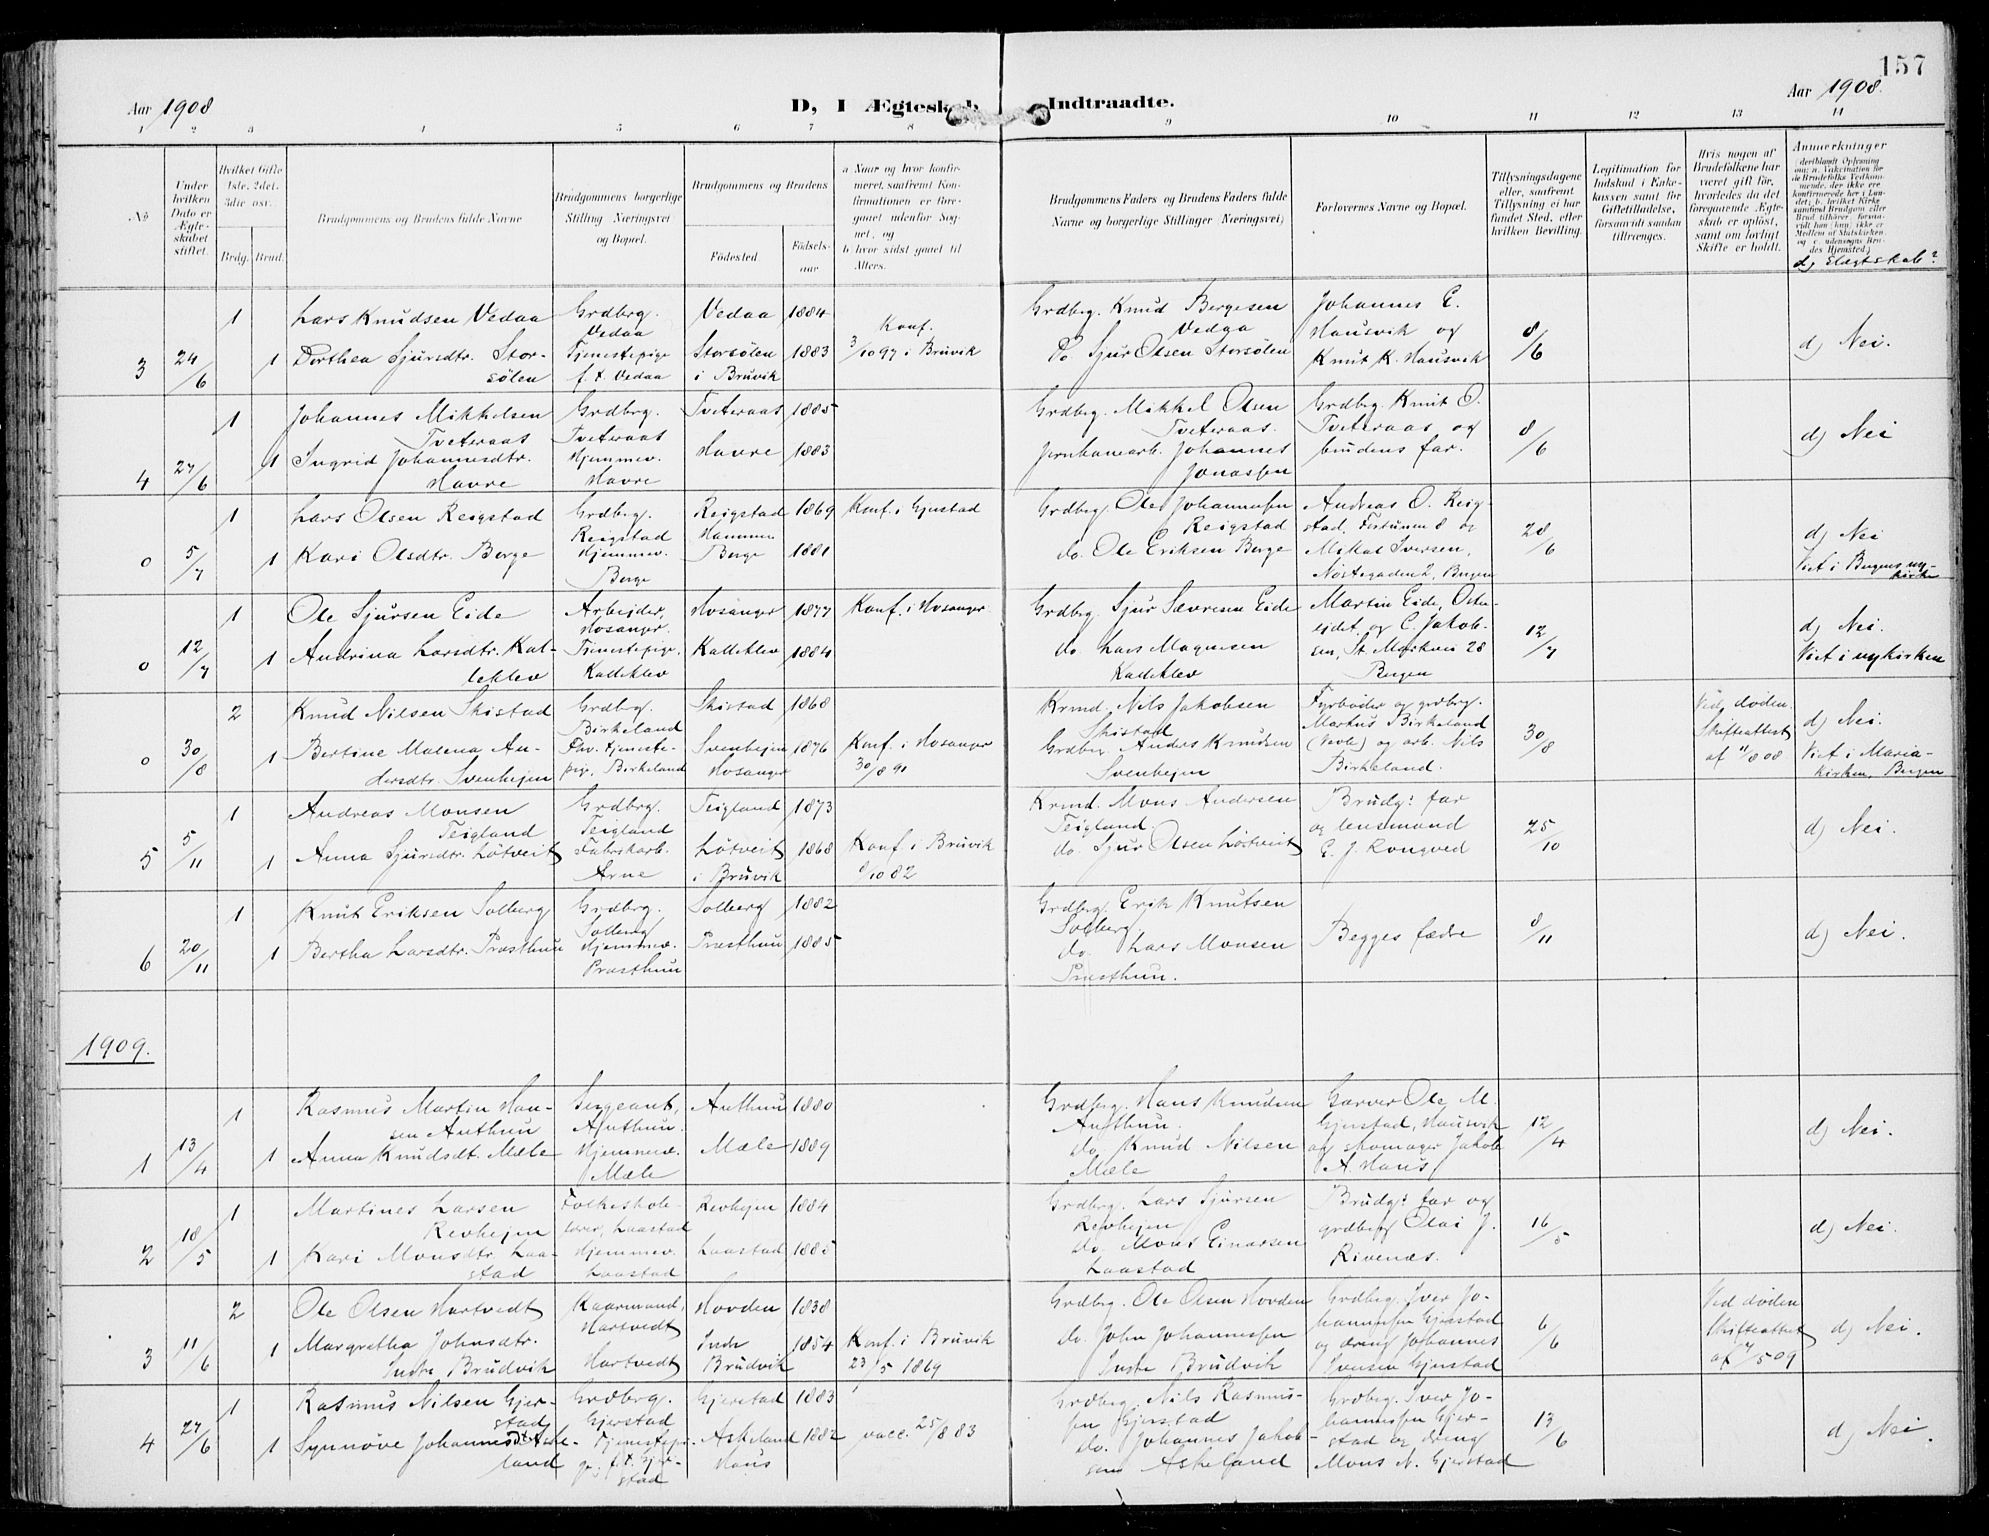 157
Aar 1908
D, I Ægteskab Indtraadte.
Aar 1908.
1 2 3 4 5 6 7 8 9 10 11 12 13 14
No
Under hvilken Dato er Ægteskabet stiftet.
Hvilket Gifte 1ste, 2det, 3die osv.
Brdg. Brud.
Brudgommens og Brudens fulde Navne
Brudgommens borgerlige Stilling Næringsvei og Bopæl.
Brudgommens og Brudens
Fødested.
Fødselsaar
a Naar og hvor konfirmeret, saafremt Konfirmationen er foregaaet udenfor Sognet, og
b hvor sidst gaaet til Alters.
Brudgommens Faders og Brudens Faders fulde Navne og borgerlige Stillinger (Næringsvei)
Forlovernes Navne og Bopæl.
Tillysningsdagene eller, saafremt Tillysning ei har fundet Sted, efter hvilken Bevilling.
Legitimation for Indskud i Enkekassen samt for Giftetilladelse, forsaavidt saadan tiltrænges.
Hvis nogen af Brudefolkene har været gift før, hvorledes da det foregaaende Ægteskab er opløst, samt om lovligt Skifte er holdt.
Anmerkninger
d) Slægtskab?
3 24/6 1 Lars Knudsen Vedaa Grdbrg. Vedaa Vedaa 1884 Grdbrg. Knud Bergesen Vedaa Johannes E. Hausvik og Knut K. Hausvik 8/6 d) Nei.
1 Dorthea Sjursdtr. Storsølen Tjenestepige f. t. Vedaa Storsølen i Bruvik 1883 Konf. 3/10 97 i Bruvik Do Sjur Olsen Storsølen
4 27/6 1 Johannes Mikkelsen Tveteraas Grdbrg. Tveteraas Tveteraas 1885 Grdbrg. Mikkel Olsen Tveteraas. Grdbrg. Knut O. Tveteraas og brudens far. 8/6 d) Nei
1 Ingrid Johannesdtr. Havre Hjemmev. Havre Havre 1883 Jernbanearb. Johannes Jonassen
0 5/7 1 Lars Olsen Reigstad Grdbrg. Reigstad Reigstad Hammer 1869 Konf. i Gjerstad Grdbrg. Ole Johannesen Reigstad Andreas O. Reigstad, og Mikal Iversen, Nøstegaden 2, Bergen 28/6 d) Nei Viet i Bergens nykirke
1 Kari Olsdtr. Berge Hjemmev. Berge Berge 1881 do. Ole Eriksen Berge
0 12/7 1 Ole Sjursen Eide Arbeider, Hosanger. Hosanger 1877 Konf. i Hosanger Grdbrg. Sjur Sævresen Eide Martin Eide, Ostereidet og C. Jakobsen, St. Markvei 28 Bergen 12/7 d) Nei. Viet i nykirken
1 Andrina Larsdtr. Kalleklev Tjenestepige. Kalleklev Kalleklev 1884 do. Lars Magnesen Kalleklev
0 30/8 2 Knud Nilsen Skistad Grdbrg. Birkeland Skistad 1868 Krmd. Nils Jakobsen Skistad Fyrbøder og grdbrg. Martus Birkeland og arb. Nils Birkeland. 30/8 Ved døden. Skifteattest af 11/8 08 d) Nei. Viet i Mariakirken, Bergen
1 Bertine Malena Andersdtr. Svenhejen Fhv. tjenestepig. Birkeland Svenhejen Hosanger 1876 Konf. i Hosanger 30/8 91 Grdbrg. Anders Knudsen Svenhejen
5 5/11 1 Andreas Monsen Teigland Grdbrg. Teigland Teigland 1873 Krmd. Mons Andersen Teigland Brudg: far og lensmand E. J. Rongved 25/10 d) Nei.
1 Anna Sjursdtr. Løtveit Fabrikarb. Arne Løtveit i Bruvik 1868 Konf. i Bruvik 8/10 82 do. Sjur Olsen Løtveit
6 20/11 1 Knut Eriksen Solberg Grdbrg. Solberg Solberg 1882 Grdbrg. Erik Knutsen Solberg Begges fædre 8/11 d) Nei.
1 Bertha Larsdtr. Præsthun Hjemmev. Præsthun Præsthun 1885 do. Lars Monsen Præsthun.
1909.
1 13/4 1 Rasmus Martin Hansen Anthun Sergeant, Anthun. Anthun 1880 Grdbrg. Hans Knudsen Anthun. Garver Ole M. Gjerstad, Hausvik og skomager Jakob A Haus 12/4 d) Nei.
1 Anna Knudsdt. Mæle Hjemmev. Mæle Mæle 1889 do. Knud Nilsen Mæle
2 18/5 1 Martines Larsen Revhejen Folkeskolelærer, Laastad Revhejen 1884 Grdbrg. Lars Sjursen Revhejen Brudg: far og grdbrg Olai J. Rivenæs. 16/5 d) Nei.
1 Kari Monsdtr. Laastad Hjemmev. Laastad Laastad 1885 do. Mons Einarsen Laastad
3 11/6 2 Ole Olsen Hartvedt Kaarmand, Hartvedt Hovden 1838 Grdbrg. Ole Olsen Hovden Grdbrg. Iver Johannessen Gjerstad og dreng Johannes Iversen Gjerstad 6/6 Ved døden Skifteattest af 7/5 09 d) Nei.
1 Margretha Johnsdtr. Indre Brudvik Hartvedt Indr Brudvik 1854 Konf. i Bruvik 23/5 1869 do. John Johannessen Indre Brudvik
4 27/6 1 Rasmus Nilsen Gjerstad Grdbrg. Gjerstad Gjerstad 1883 Grdbrg. Nils Rasmussen Gjerstad Grdbrg. Iver Johannessen Gjerstad og dreng Mons N. Gjerstad 13/6 d) Nei.
1 Synnøve Johannesdt Askeland Tjenestepige, f.t. Gjerstad Askeland Haus 1882 vacc. 25/8 83 do. Johannes Jakobsen Askeland